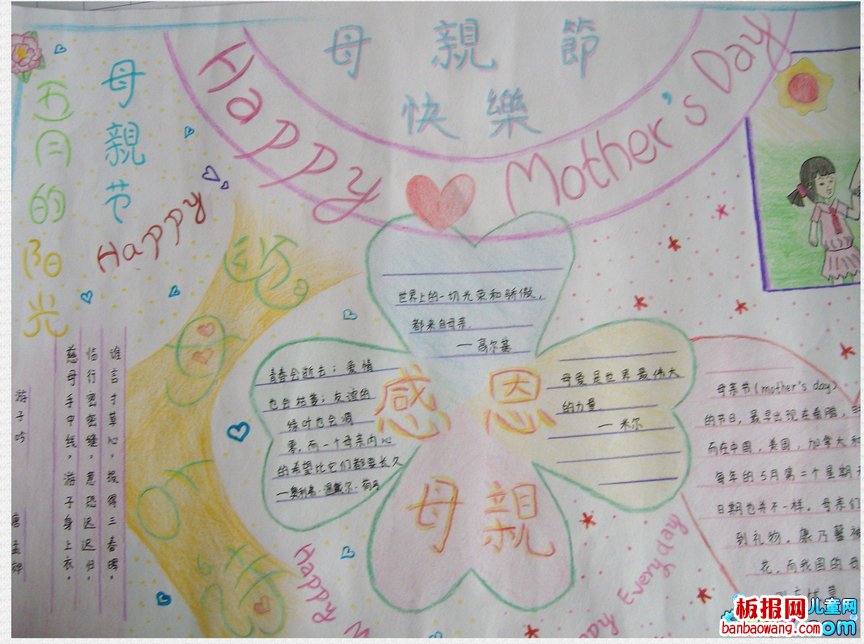 母親節
快樂
Happy Mother's Day
母親节
Happy
五月的阳光
谁言寸草心，报得三春晖。
临行密密缝，意恐迟迟归。
慈母手中线，游子身上衣。
游子吟
唐 孟郊
世界上的一切光荣和骄傲，
都来自母亲。
一高尔基
青春会逝去；爱情
也会枯萎；友谊的
绿叶也会凋
零，而一个母亲内心
的希望比它们都要长久
母爱是世界最伟大
的力量
一米尔
感恩
母親
母亲节(mother's day)
的节日，最早出现在希腊，
而在中国、美国，加拿大和
每年的5月第二个星期
日期也并不一样。母亲们
到礼物，康乃馨被
花，而我国的母
Happy M
Happy Everyday
板报网
儿童网
banbaowang.com